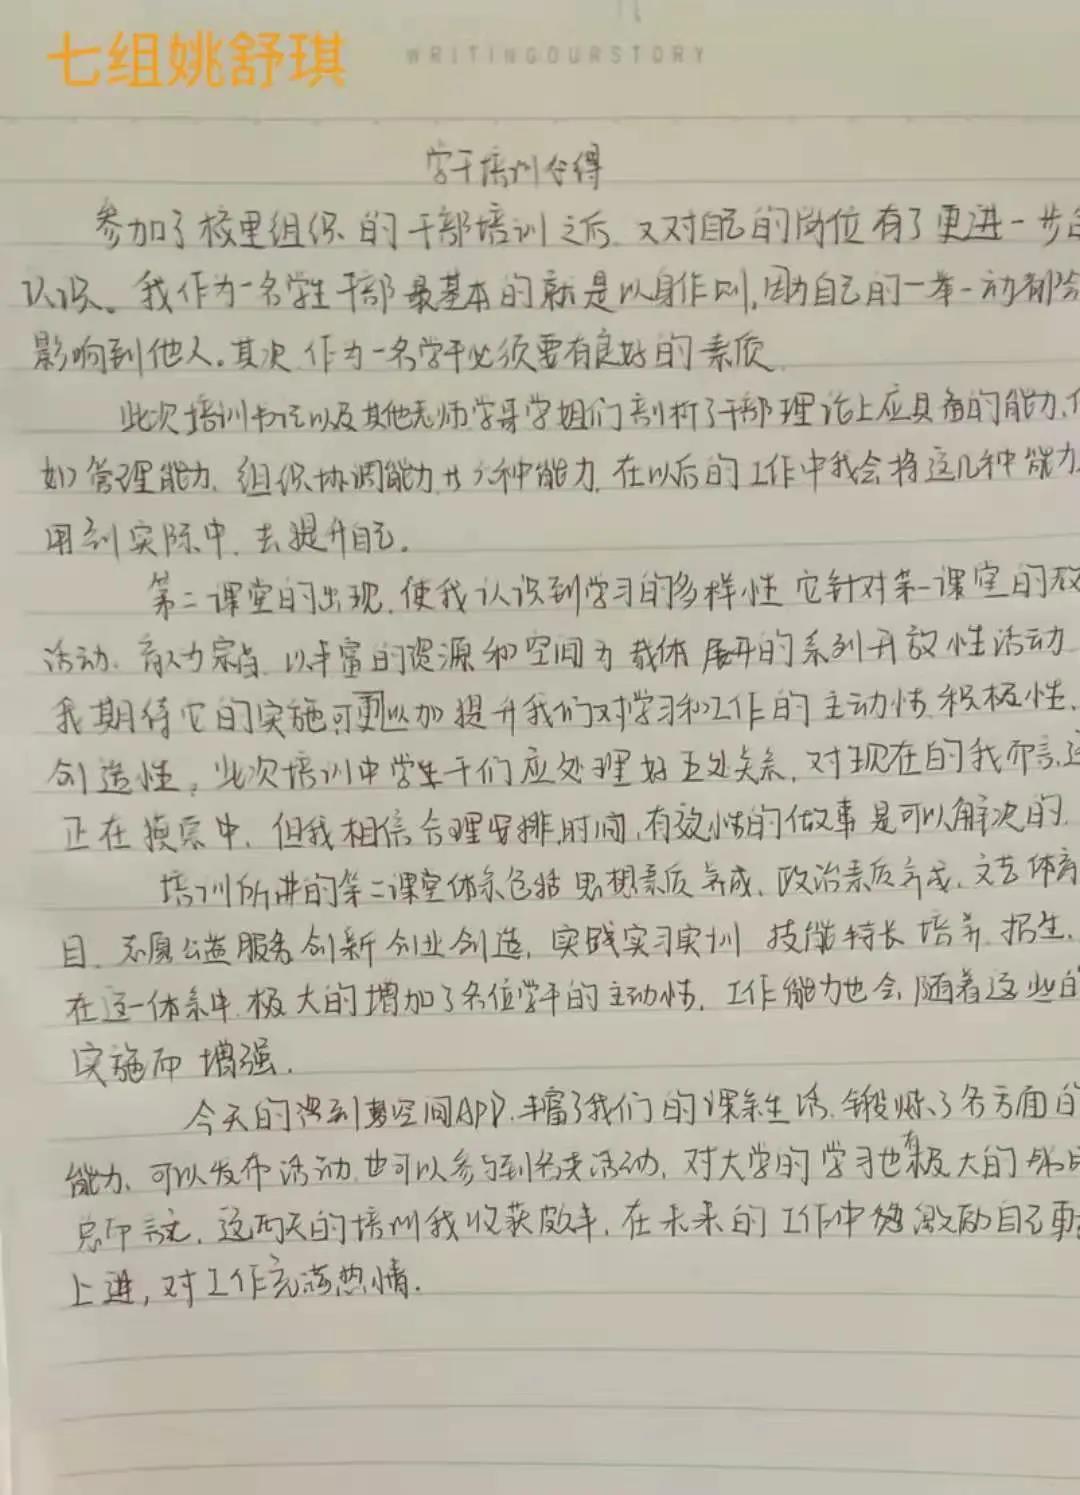 七组姚舒琪
WRITINGOURSTORY
学干培训心得
参加了校里组织的干部培训之后,又对自己的岗位有了更进一步
认识。我作为一名学生干部最基本的就是以身作则,因为自己的一举一动都会
影响到他人。其次,作为一名学干必须要有良好的素质
此次培训书记以及其他老师学哥学姐们剖析了干部理论上应具备的能力,
如)管理能力,组织协调能力共六种能力,在以后的工作中我会将这几种能力
用到实际中,去提升自己。
第二课堂的出现,使我认识到学习的多样性,它针对第一课堂的
活动,育人为宗旨,以丰富的资源和空间为载体展开的系列开放性活动
我期待它的实施,可更以加提升我们对学习和工作的主动性,积极性,
创造性,此次培训中学生干们应处理好五处关系,对现在的我而言,这
正在摸索中,但我相信合理安排时间,有效性的做事是可以解决的,
培训所讲的第二课堂体系包括思想素质养成,政治素质养成,文艺体育
目,志愿公益服务创新创业创造,实践实习实训 技能特长培养,招生,
在这一体系中,极大的增加了各位学干的主动性,工作能力也会随着这些
实施而增强.
今天的到梦空间APP,丰富了我们的课余生活,锻炼了各方面
能力,可以发布活动,也可以参与到各类活动,对大学的学习也有极大的
总而言之,这两天的培训我收获颇丰,在未来的工作中勉激励自己
上进,对工作充满热情.